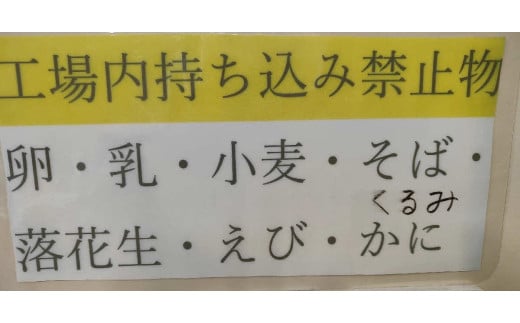 工場内持ち込み禁止物
卵・乳・小麦・そば・
くるみ
落花生・えび・かに